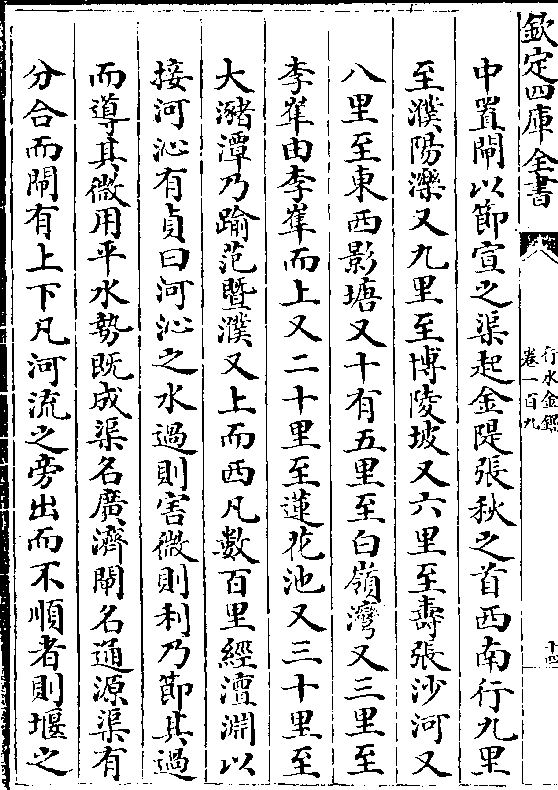 欽定四庫全書
行水金鑑
卷一百九
十四
中置閘以節宣之渠起金隄張秋之首西南行九里
至濮陽濼又九里至博陵坡又六里至壽張沙河又
八里至東西影塘又十有五里至白嶺灣又三里至
李𡶶由李𡶶而上又二十里至蓮花池又三十里至
大瀦潭乃踰范暨濮又上而西凡數百里經澶淵以
接河沁有貞曰河沁之水過則害微則利乃節其過
而導其微用平水勢既成渠名廣濟閘名通源渠有
分合而閘有上下凡河流之旁出而不順者則堰之